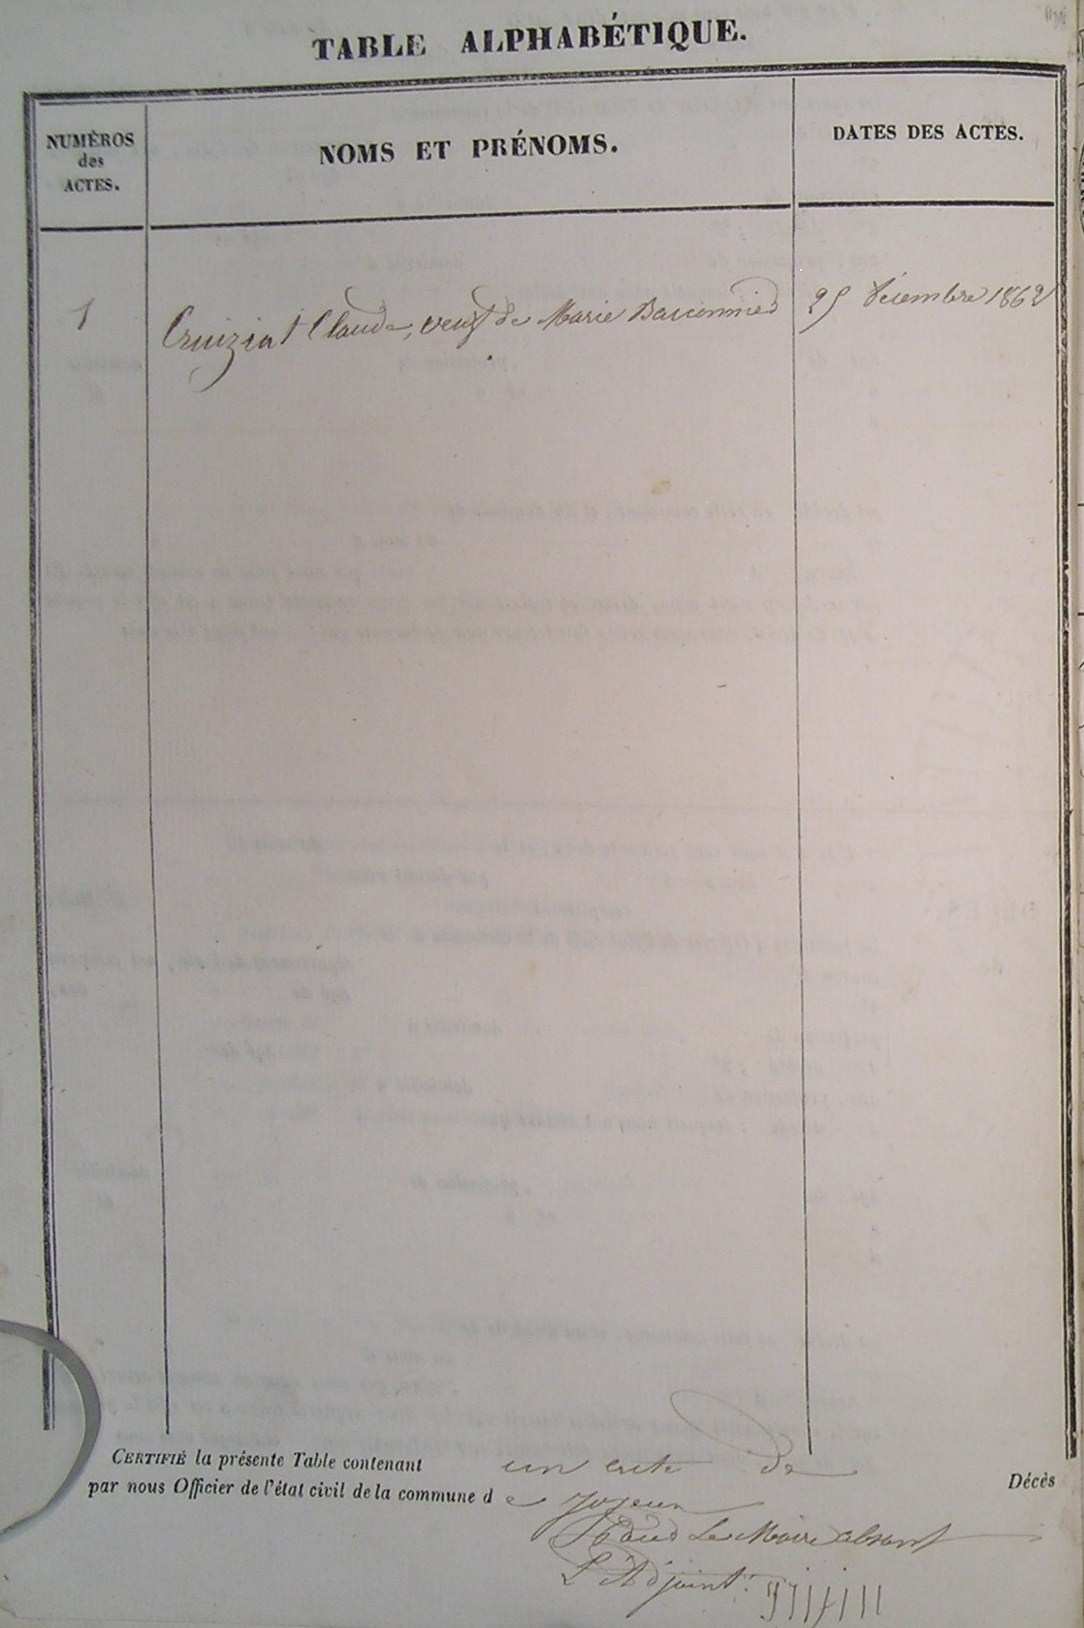 TABLE ALPHABÉTIQUE.
NUMÉROS
des
ACTES.
NOMS ET PRÉNOMS.
DATES DES ACTES.
1
Cruiziat Claude, veuf de Marie
25 Décembre 1862
CERTIFIÉ la présente Table contenant un acte de Décès
par nous Officier de l'état civil de la commune de Joyeux
Le Maire absent
L'Adjoint